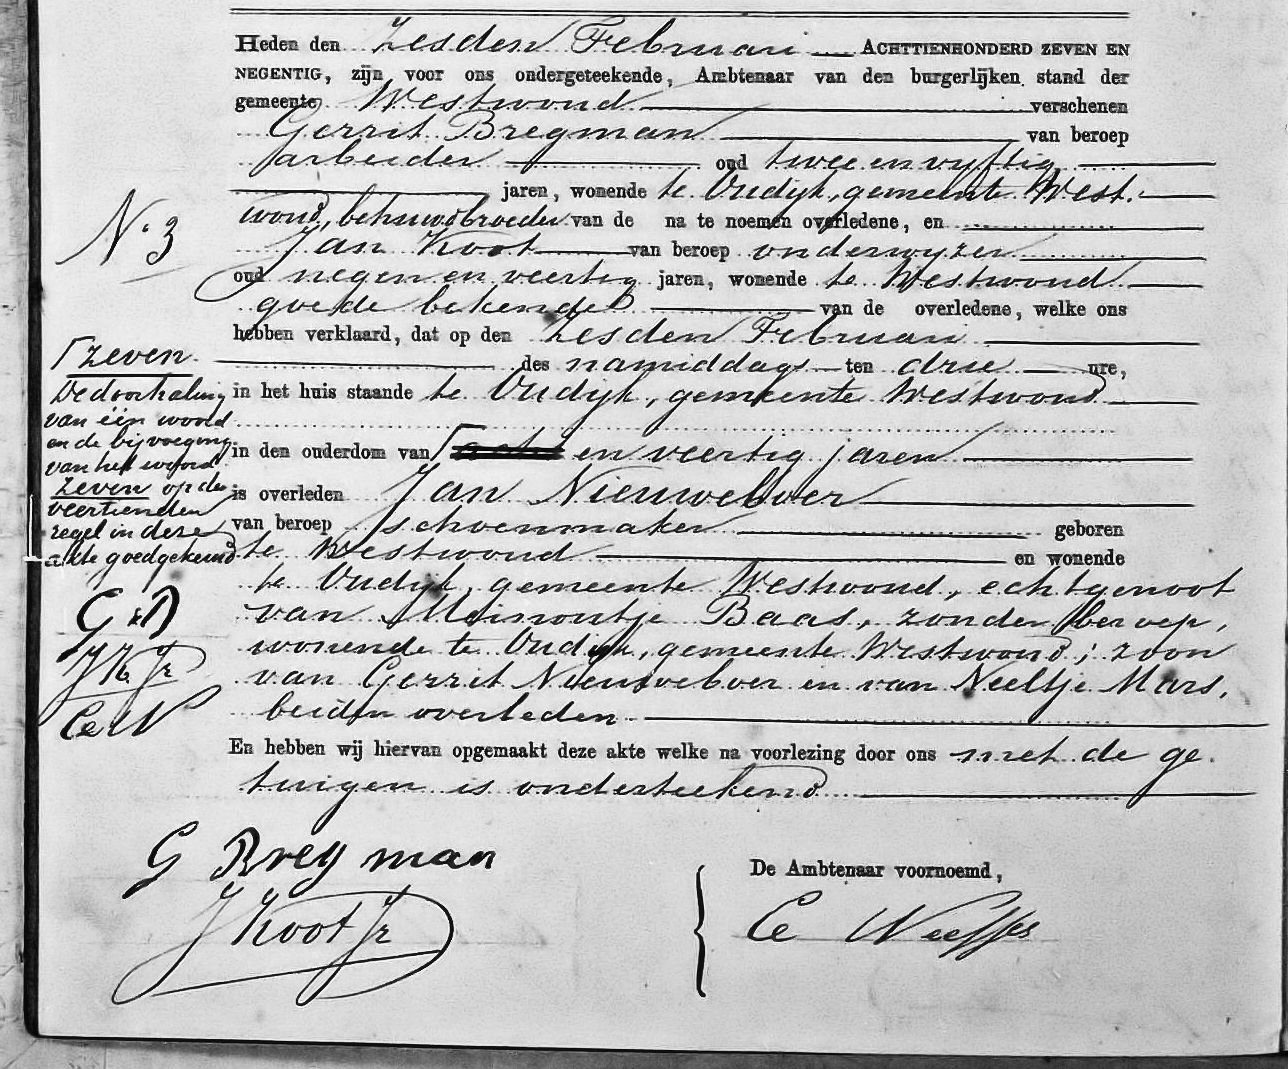 Heden den Zesden Februari ACHTTIENHONDERD ZEVEN EN
NEGENTIG, zijn voor ons ondergeteekende, Ambtenaar van den burgerlijken stand der
gemeente Westwoud verschenen
Gerrit Bregman van beroep
arbeider oud twee en vyftig
jaren, wonende te Oudijk, gemeente West-
woud, behuwdbroeder van de na te noemen overledene, en
Jan Koot van beroep onderwyzer
oud negen en veertig jaren, wonende te Westwoud
goede bekende van de overledene, welke ons
hebben verklaard, dat op den Zesden Februari
des namiddags ten drie ure,
in het huis staande te Oudijk, gemeente Westwoud
in den ouderdom van ┌ acht en veertig jaren
is overleden Jan Nieuweboer
van beroep schoenmaker geboren
te Westwoud en wonende
te Oudijk, gemeente Westwoud, echtgenoot
van Meinoutje Baas, zonder beroep,
wonende te Oudijk, gemeente Westwoud; zoon
van Gerrit Nieuweboer en van Neeltje Mars,
beiden overleden
En hebben wij hiervan opgemaakt deze akte welke na voorlezing door ons met de ge-
tuigen is onderteekend
No. 3
┌ zeven
De doorhaling
van één woord
en de bijvoeging
van het woord
zeven op den
veertienden
regel in deze
akte goedgekeurd
G B
J K Jr
Ce N
G Bregman
J Koot Jr
De Ambtenaar voornoemd,
Ce Neefjes